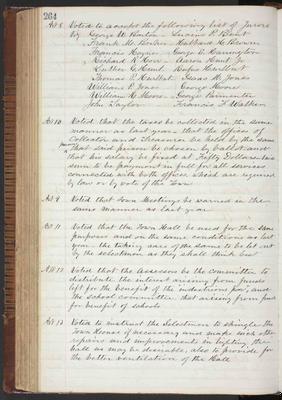 264
Art 8 Voted to accept the following list of Jurors
viz George W. Burton Lucius P. Bent
Frank M. Bowker Hubbard H. Brown
Francis Heyer George E. Harrington
Richard R. Horr Aaron Hunt Jr
Luther G. Hunt Rufus Hurlbut
Thomas P. Hurlbut Isaac N. Jones
William P. Jones George Moore
William H. Moore George Parmenter
John Taylor Francis F. Walker
Art 10 Voted that the taxes be collected in the same
manner as last year - that the offices of
Collector and Treasurer be held by the same
person That said person be chosen by ballot and
that his salary be fixed at Fifty Dollars
sum to be payment in full for all services
connected with both offices which are required
by law or by vote of the Town
Art 9 Voted that Town Meetings be warned in the
same manner as last year
Art 11 Voted that the Town Hall be used for the same
purposes and on the same conditions as last
year - the taking care of the same to be let out
by the selectmen as they shall think best
Art 12 Voted that the assessors be the committee to
distribute the interest arising from funds
left for the benefit of the industrious poor, and
the school committee that arising from funds
for benefit of schools
Art 13 Voted to instruct the Selectmen to shingle the
Town House if necessary and make such other
repairs and improvements in lighting the
hall as may be desirable, also to provide for
the better ventilation of the Hall